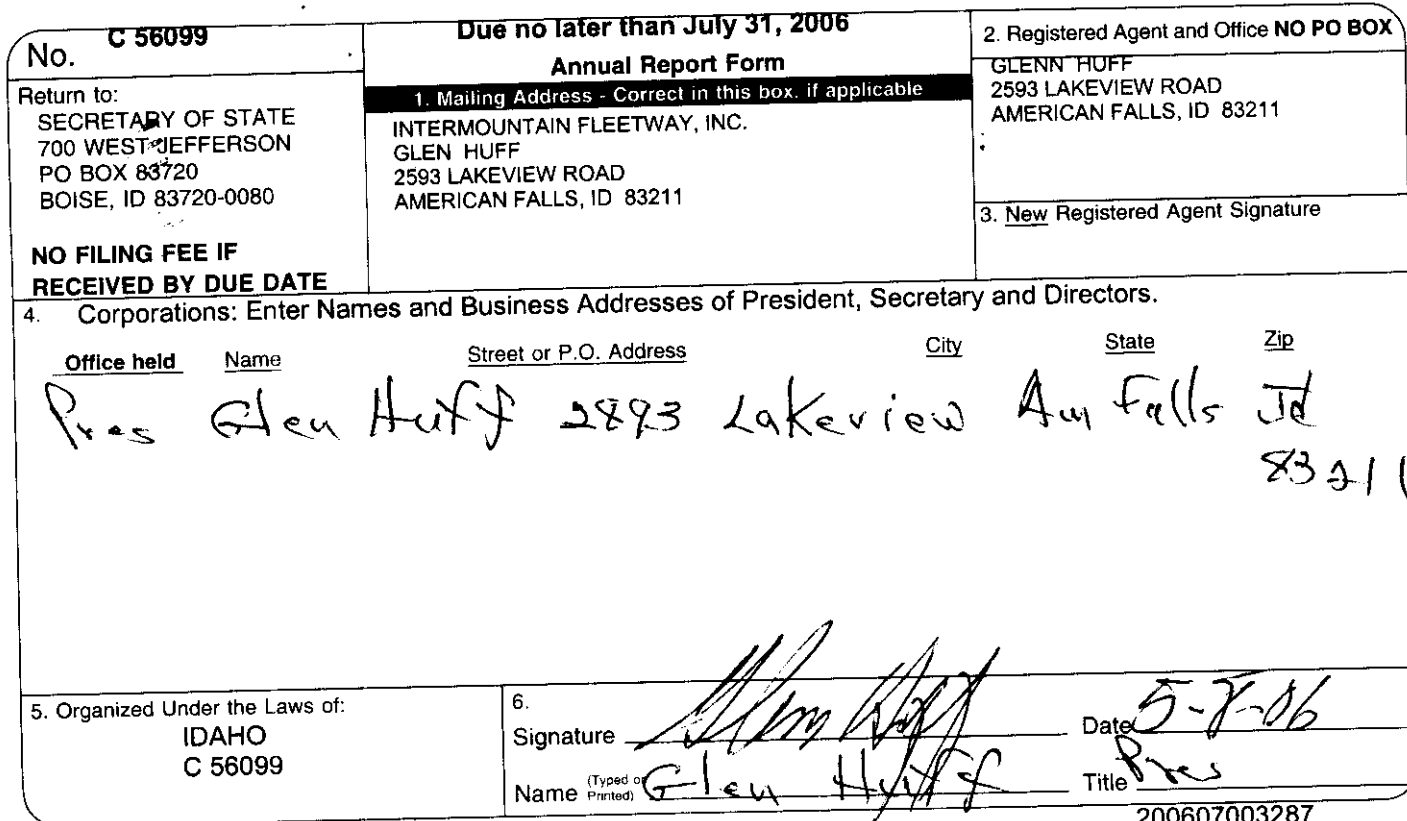 No. C 56099
Return to:
SECRETARY OF STATE
700 WEST JEFFERSON
PO BOX 83720
BOISE, ID 83720-0080
NO FILING FEE IF
RECEIVED BY DUE DATE
Due no later than July 31, 2006
Annual Report Form
1. Mailing Address - Correct in this box. if applicable
INTERMOUNTAIN FLEETWAY, INC.
GLEN HUFF
2593 LAKEVIEW ROAD
AMERICAN FALLS, ID 83211
2. Registered Agent and Office NO PO BOX
GLENN HUFF
2593 LAKEVIEW ROAD
AMERICAN FALLS, ID 83211
3. New Registered Agent Signature
4. Corporations: Enter Names and Business Addresses of President, Secretary and Directors.
Office held Name Street or P.O. Address City State Zip
Pres Glen Huff 2893 Lakeview Am Falls Id
83211
5. Organized Under the Laws of:
IDAHO
C 56099
6.
Signature Glen Huff Date 5-8-06
Name (Typed or Printed) Glen Huff Title Pres
200607003287